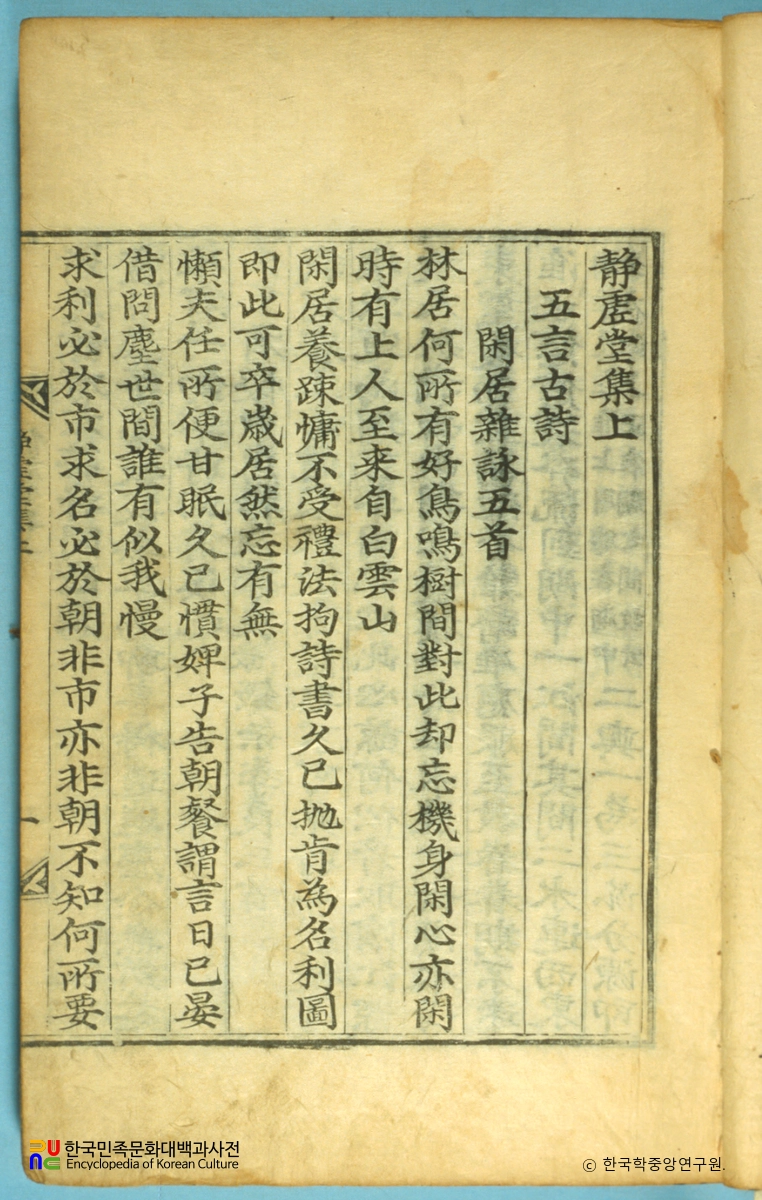 静虗堂集上
五言古詩
閑居雜詠五首
林居何所有好鳥鳴樹間對此却忘機身閑心亦閑
時有上人至来自白雲山
閑居養踈慵不受禮法拘詩書久已抛肯為名利圖
即此可卒歲居然忘有無
懶夫任所便甘眠久已慣婢子告朝餐謂言日已晏
借問塵世間誰有似我慢
求利必於市求名必於朝非市亦非朝不知何所要
一
한국민족문화대백과사전
Encyclopedia of Korean Culture
© 한국학중앙연구원.